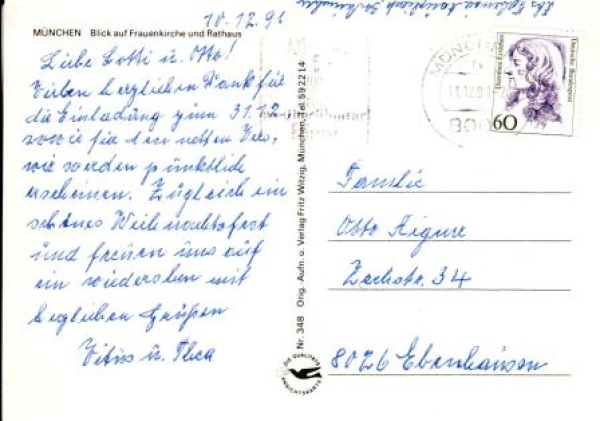 10.12.91
MÜNCHEN Blick auf Frauenkirche und Rathaus
Liebe Lotti u. Otto!
Vielen herzlichen Dank für
die Einladung zum 31.12
sowie für den netten Vers,
wir werden pünktlich
erscheinen. Zugleich ein
schönes Weihnachtsfest
und freuen uns auf
ein wiedersehen mit
herzlichen Grüßen
Vitus u. Thea
Nr. 348 Orig.-Aufn. u. Verlag Fritz Witzig, München, Tel. 592214
DIE QUALITÄTS
ANSICHTSKARTE
MÜNCH
11.12.9
800
Dorothea Erxleben
Deutsche Bundespost
60
Familie
Otto Aigner
Zechstr. 34
8026 Ebenhausen